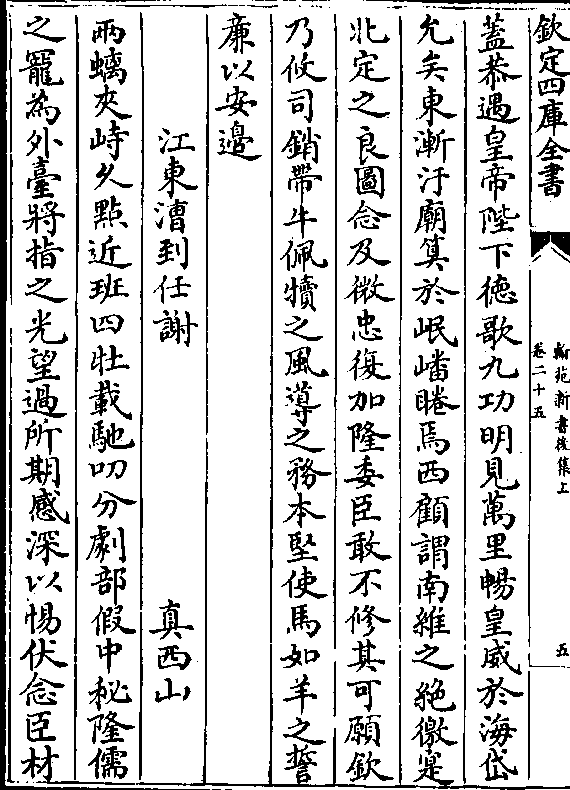 欽定四庫全書
翰苑新書後集上
卷二十五
五
蓋恭遇皇帝陛下徳歌九功明見萬里暢皇威於海岱
允矣東漸汙廟筭於岷嶓睠焉西顧謂南維之絶徼寔
北定之良圖念及微忠復加隆委臣敢不修其可願欽
乃攸司銷帶牛佩犢之風導之務本堅使馬如羊之誓
亷以安邊
江東漕到任謝
真西山
兩螭夾峙久㸃近班四牡載馳叨分劇部假中秘隆儒
之寵為外臺將指之光望過所期感深以惕伏念臣材